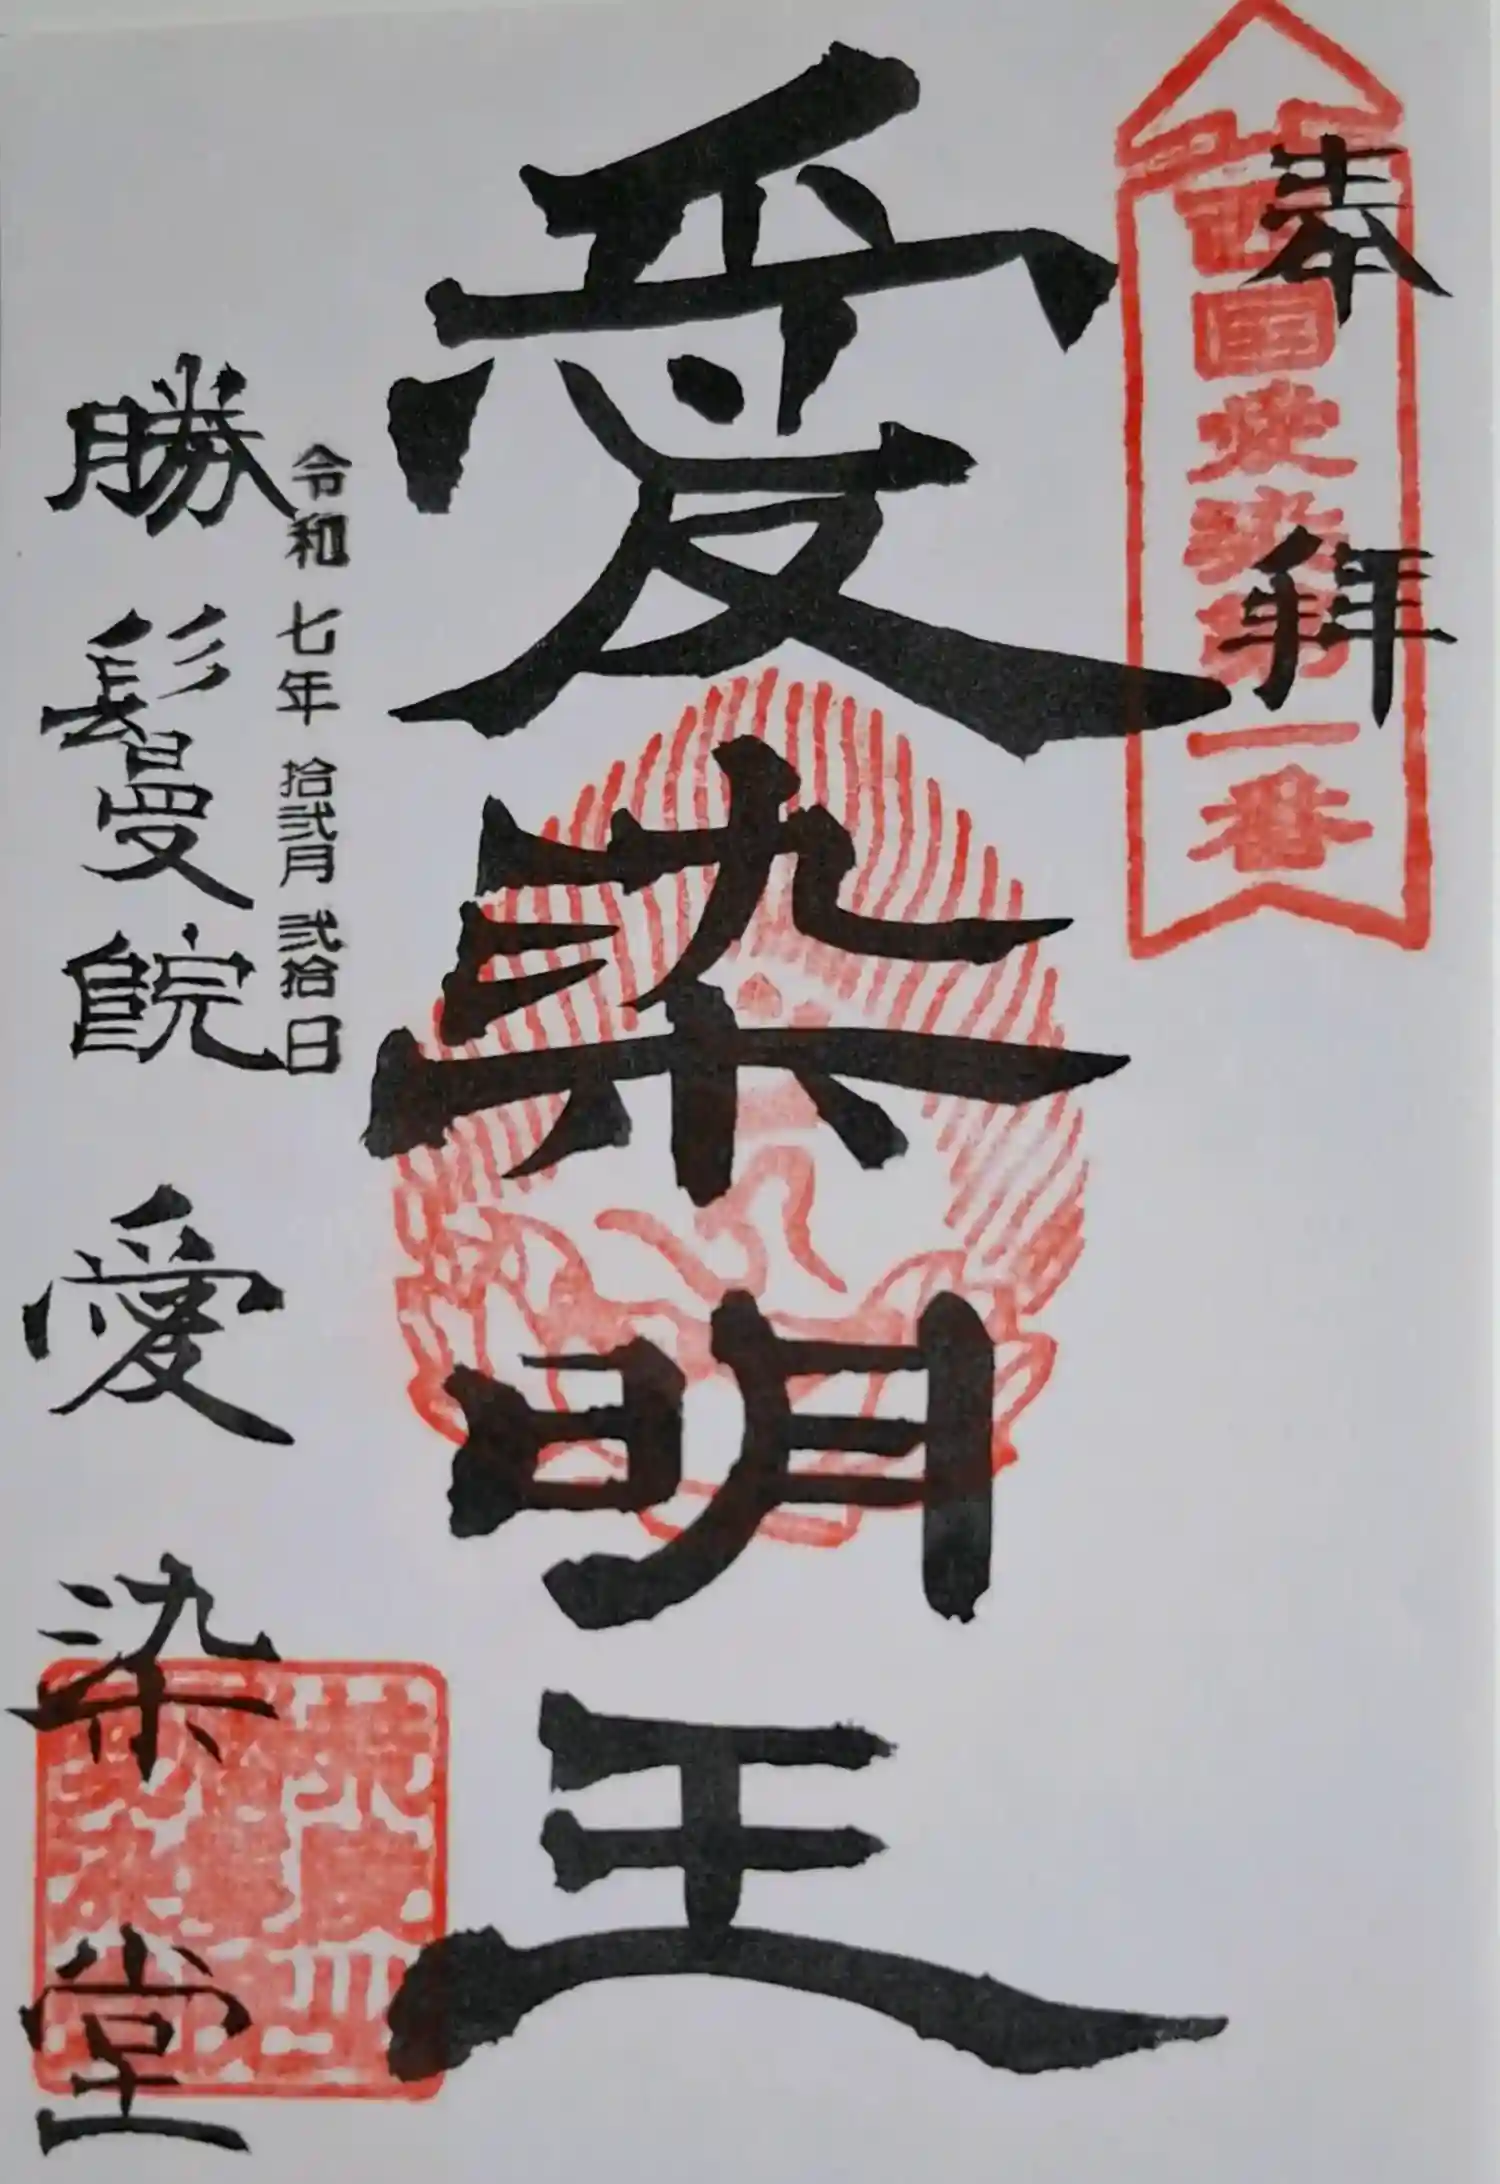 奉拝
西国愛染第一番
愛染明王
令和七年拾弐月弐拾日
勝鬘院愛染堂